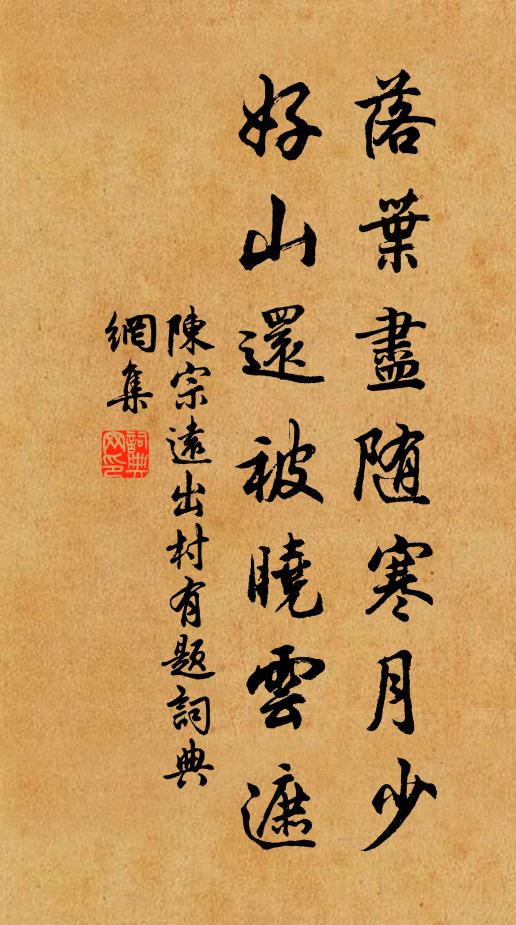 落葉盡随寒月少
好山還被曉雲遮
陳宗遠出村有题詞典
網集
詞典
网印